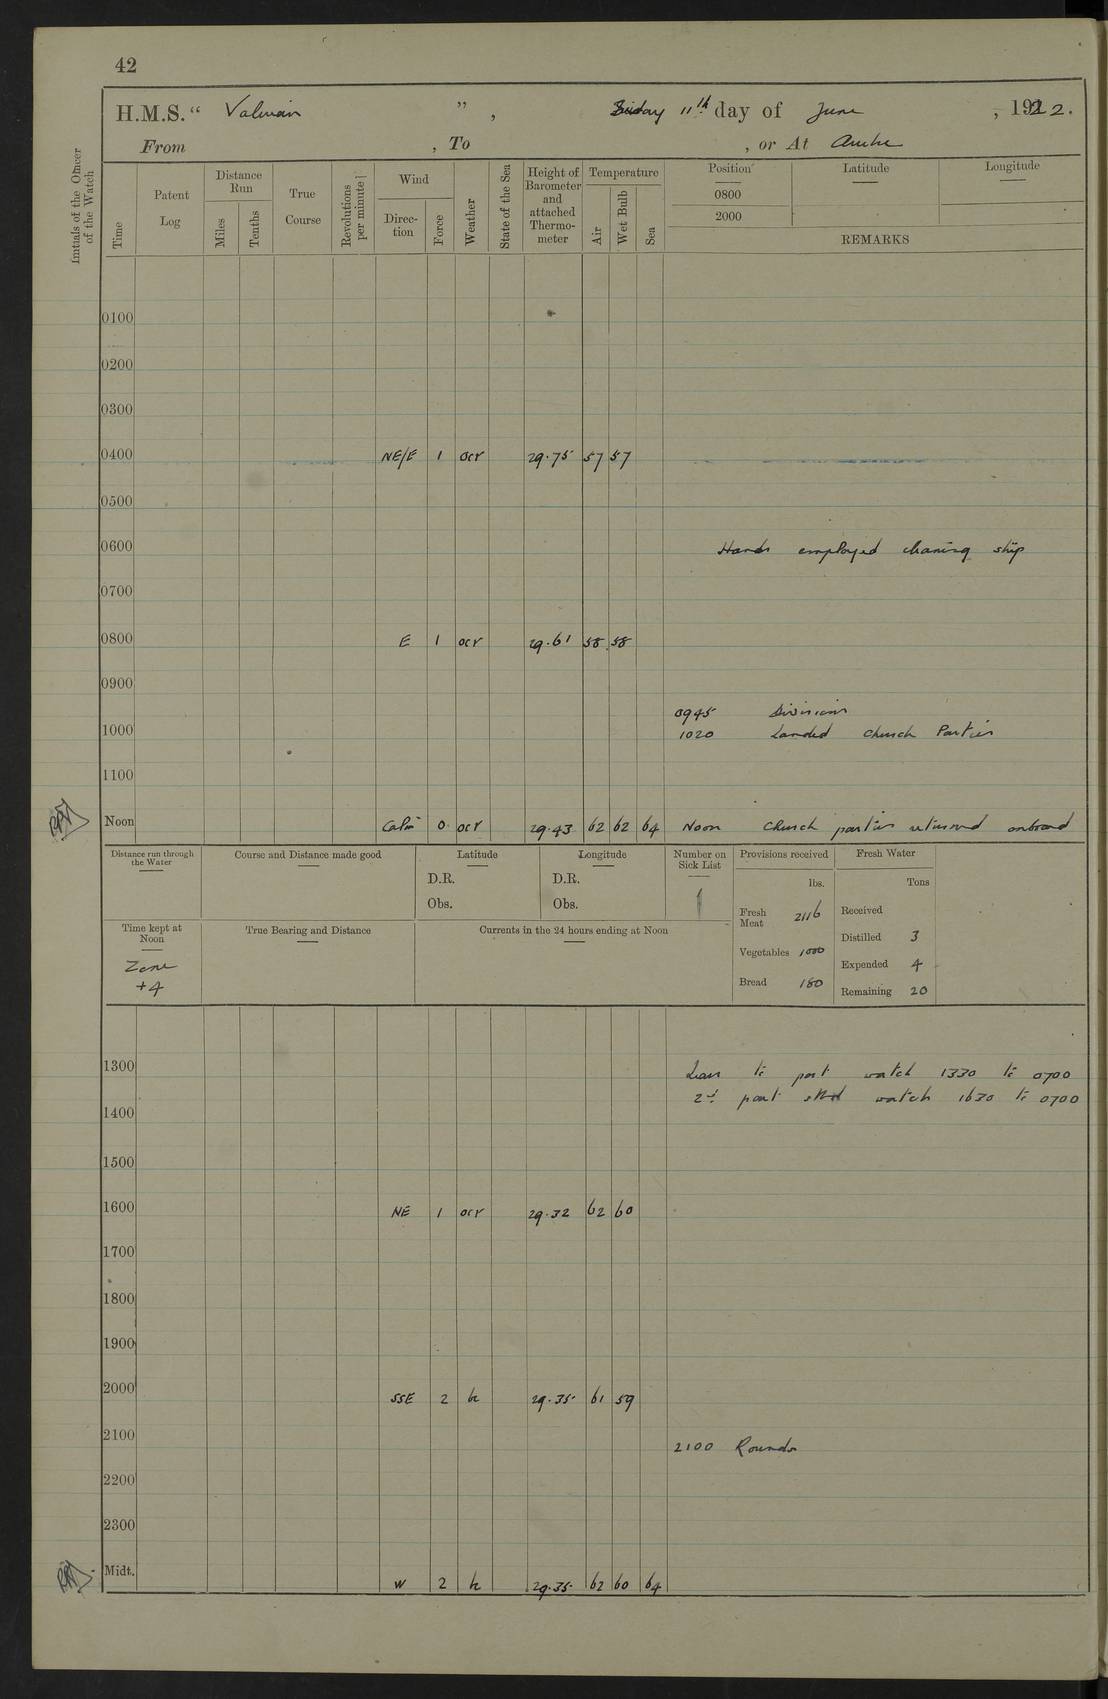 42
H.M.S. “ Valerian ” , Sunday 11th day of June , 1922.
From , To , or At
Initials of the Officer of the Watch
Time
Patent Log
Distance Run
Miles
Tenths
True Course
Revolutions per minute
Wind
Direction
Force
Weather
State of the Sea
Height of Barometer and attached Thermometer
Temperature
Air
Wet Bulb
Sea
Position Latitude Longitude
0800
2000
REMARKS
0100
0200
0300
0400 NE/E 1 ocr 29.75 57 57
0500
0600 Hands employed cleaning ship
0700
0800 E 1 ocr 29.61 58 58
0900
0945 Divisions
1000 1020 Landed Church Parties
1100
Noon Calm 0 ocr 29.43 62 62 64 Noon Church parties returned onboard
Distance run through the Water
Course and Distance made good
Latitude
D.R.
Obs.
Longitude
D.R.
Obs.
Number on Sick List
1
Provisions received
lbs.
Fresh Meat 2116
Vegetables 1000
Bread 180
Fresh Water
Tons
Received
Distilled 3
Expended 4
Remaining 20
Time kept at Noon
Zone
+4
True Bearing and Distance
Currents in the 24 hours ending at Noon
1300 Leave to port watch 1330 to 0700
2d part stbd watch 1630 to 0700
1400
1500
1600 NE 1 ocr 29.32 62 60
1700
1800
1900
2000 SSE 2 bc 29.35 61 59
2100 2100 Rounds
2200
2300
Midt. W 2 bc 29.35 62 60 64